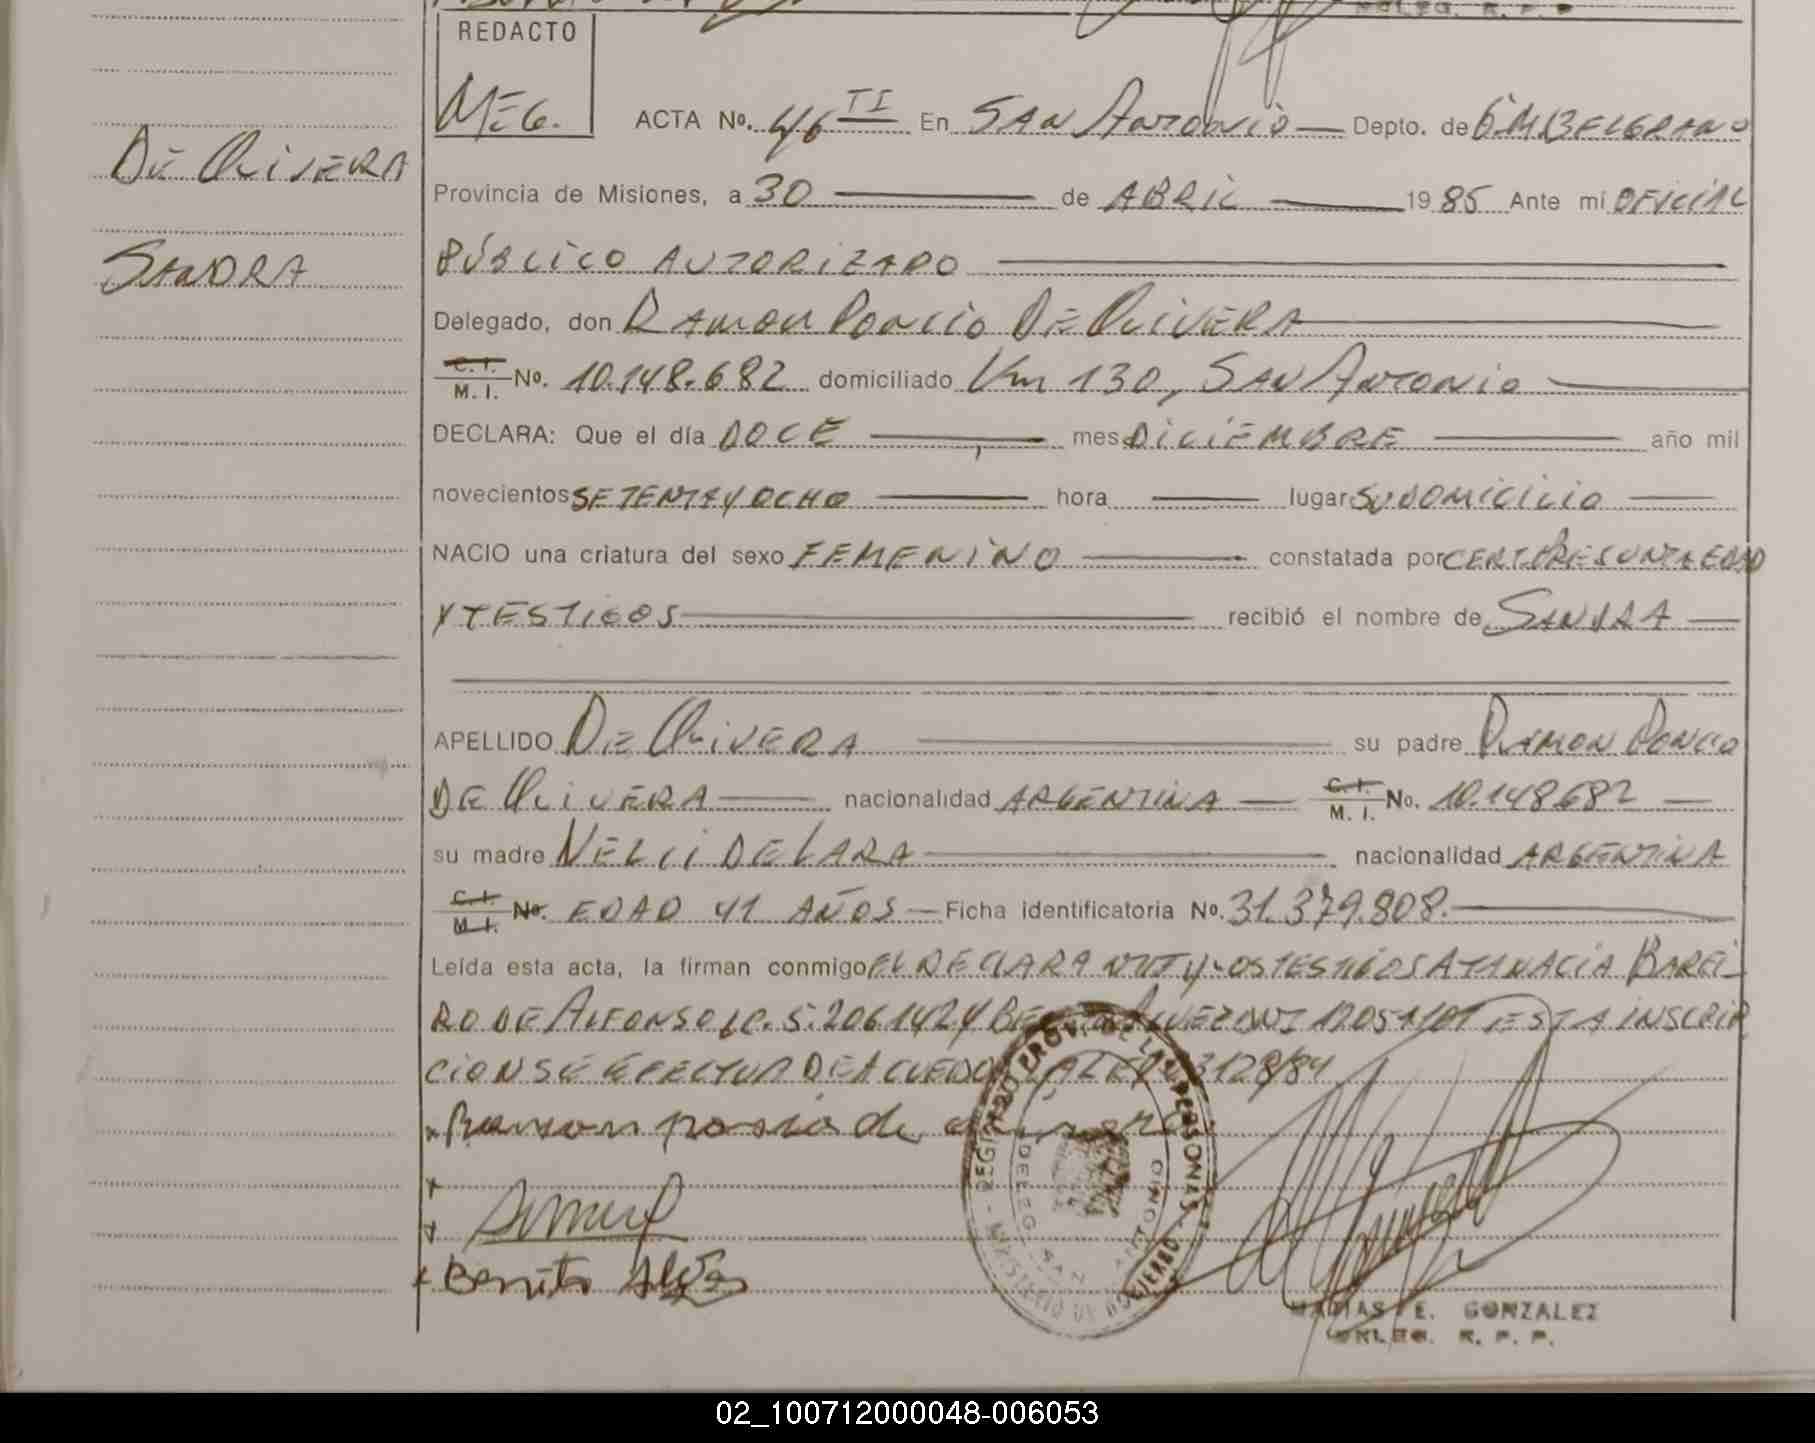 REDACTO
MEG.
ACTA No. 46 TI En SAN ANTONIO Depto. de G M BELGRANO
DE OLIVERA
Provincia de Misiones, a 30 de ABRIL 1985 Ante mi OFICIAL
SANDRA
PÚBLICO AUTORIZADO
Delegado, don RAMON PONCIO DE OLIVERA
C. I. M. I. No. 10.148.682 domiciliado Km 130, SAN ANTONIO
DECLARA: Que el día DOCE mes DICIEMBRE año mil
novecientos SETENTA Y OCHO hora lugar SU DOMICILIO
NACIO una criatura del sexo FEMENINO constatada por CERT. PRESUNTA EDAD
Y TESTIGOS recibió el nombre de SANDRA
APELLIDO DE OLIVERA su padre RAMON PONCIO
DE OLIVERA nacionalidad ARGENTINA C. I. M. I. No. 10.148.682
su madre NELCI DE LARA nacionalidad ARGENTINA
C. I. M. I. No. EDAD 41 AÑOS Ficha identificatoria No. 31.379.808.
Leída esta acta, la firman conmigo EL DECLARANTE Y LOS TESTIGOS ATANACIA BAREI-
RO DE ALFONSO LC. 5.206.142 Y ESTA INSCRIP
CION SE EFECTUA DE ACUERDO 23128/84
Ramon poncio de
Benito Alvez
REGISTRO PROVINCIAL DE LAS PERSONAS - MINISTERIO DE GOBIERNO -
DELEG. SAN ANTONIO
MATIAS E. GONZALEZ
R. P. P.
02_100712000048-006053